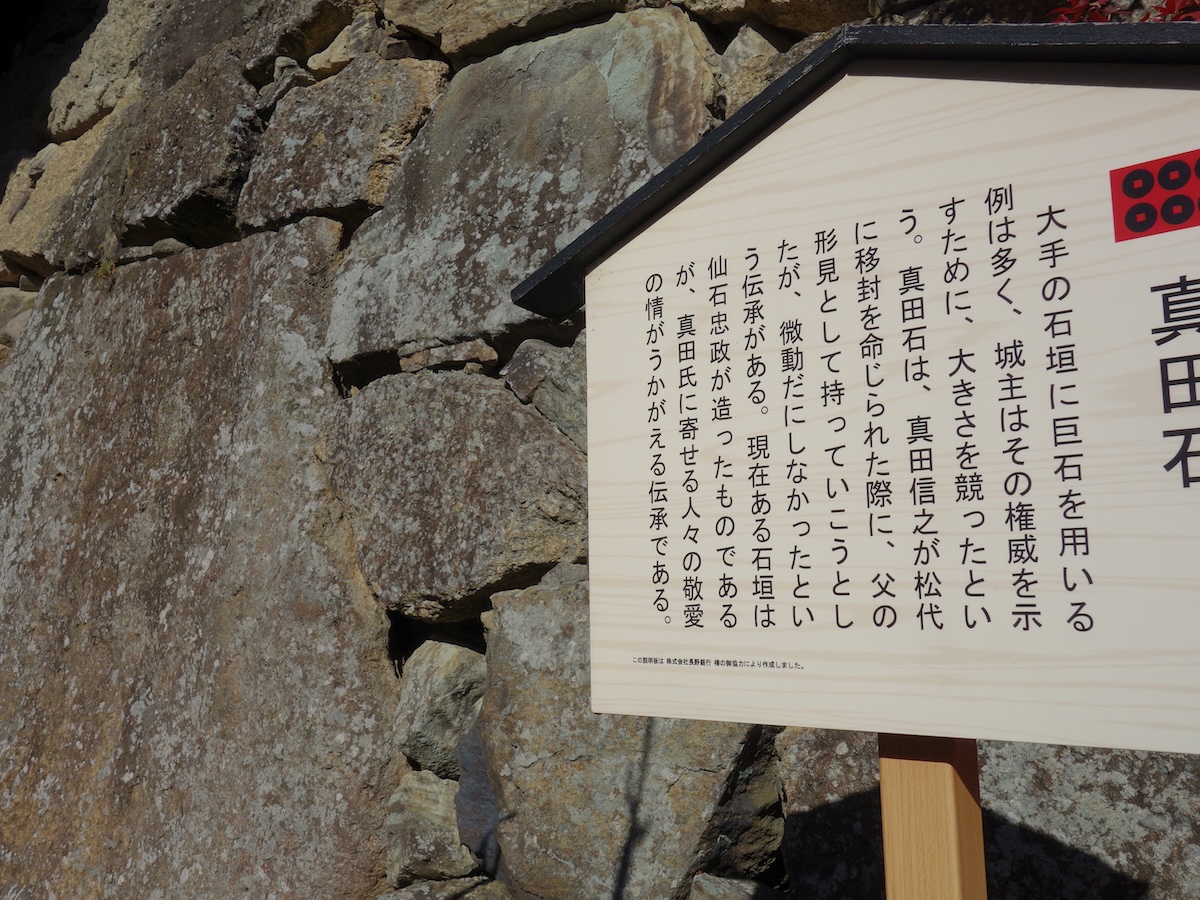 真田石
大手の石垣に巨石を用いる
例は多く、城主はその権威を示
すために、大きさを競ったとい
う。真田石は、真田信之が松代
に移封を命じられた際に、父の
形見として持っていこうとし
たが、微動だにしなかったとい
う伝承がある。現在ある石垣は
仙石忠政が造ったものである
が、真田氏に寄せる人々の敬愛
の情がうかがえる伝承である。
この説明板は 株式会社長野銀行 様の御協力により作成しました。